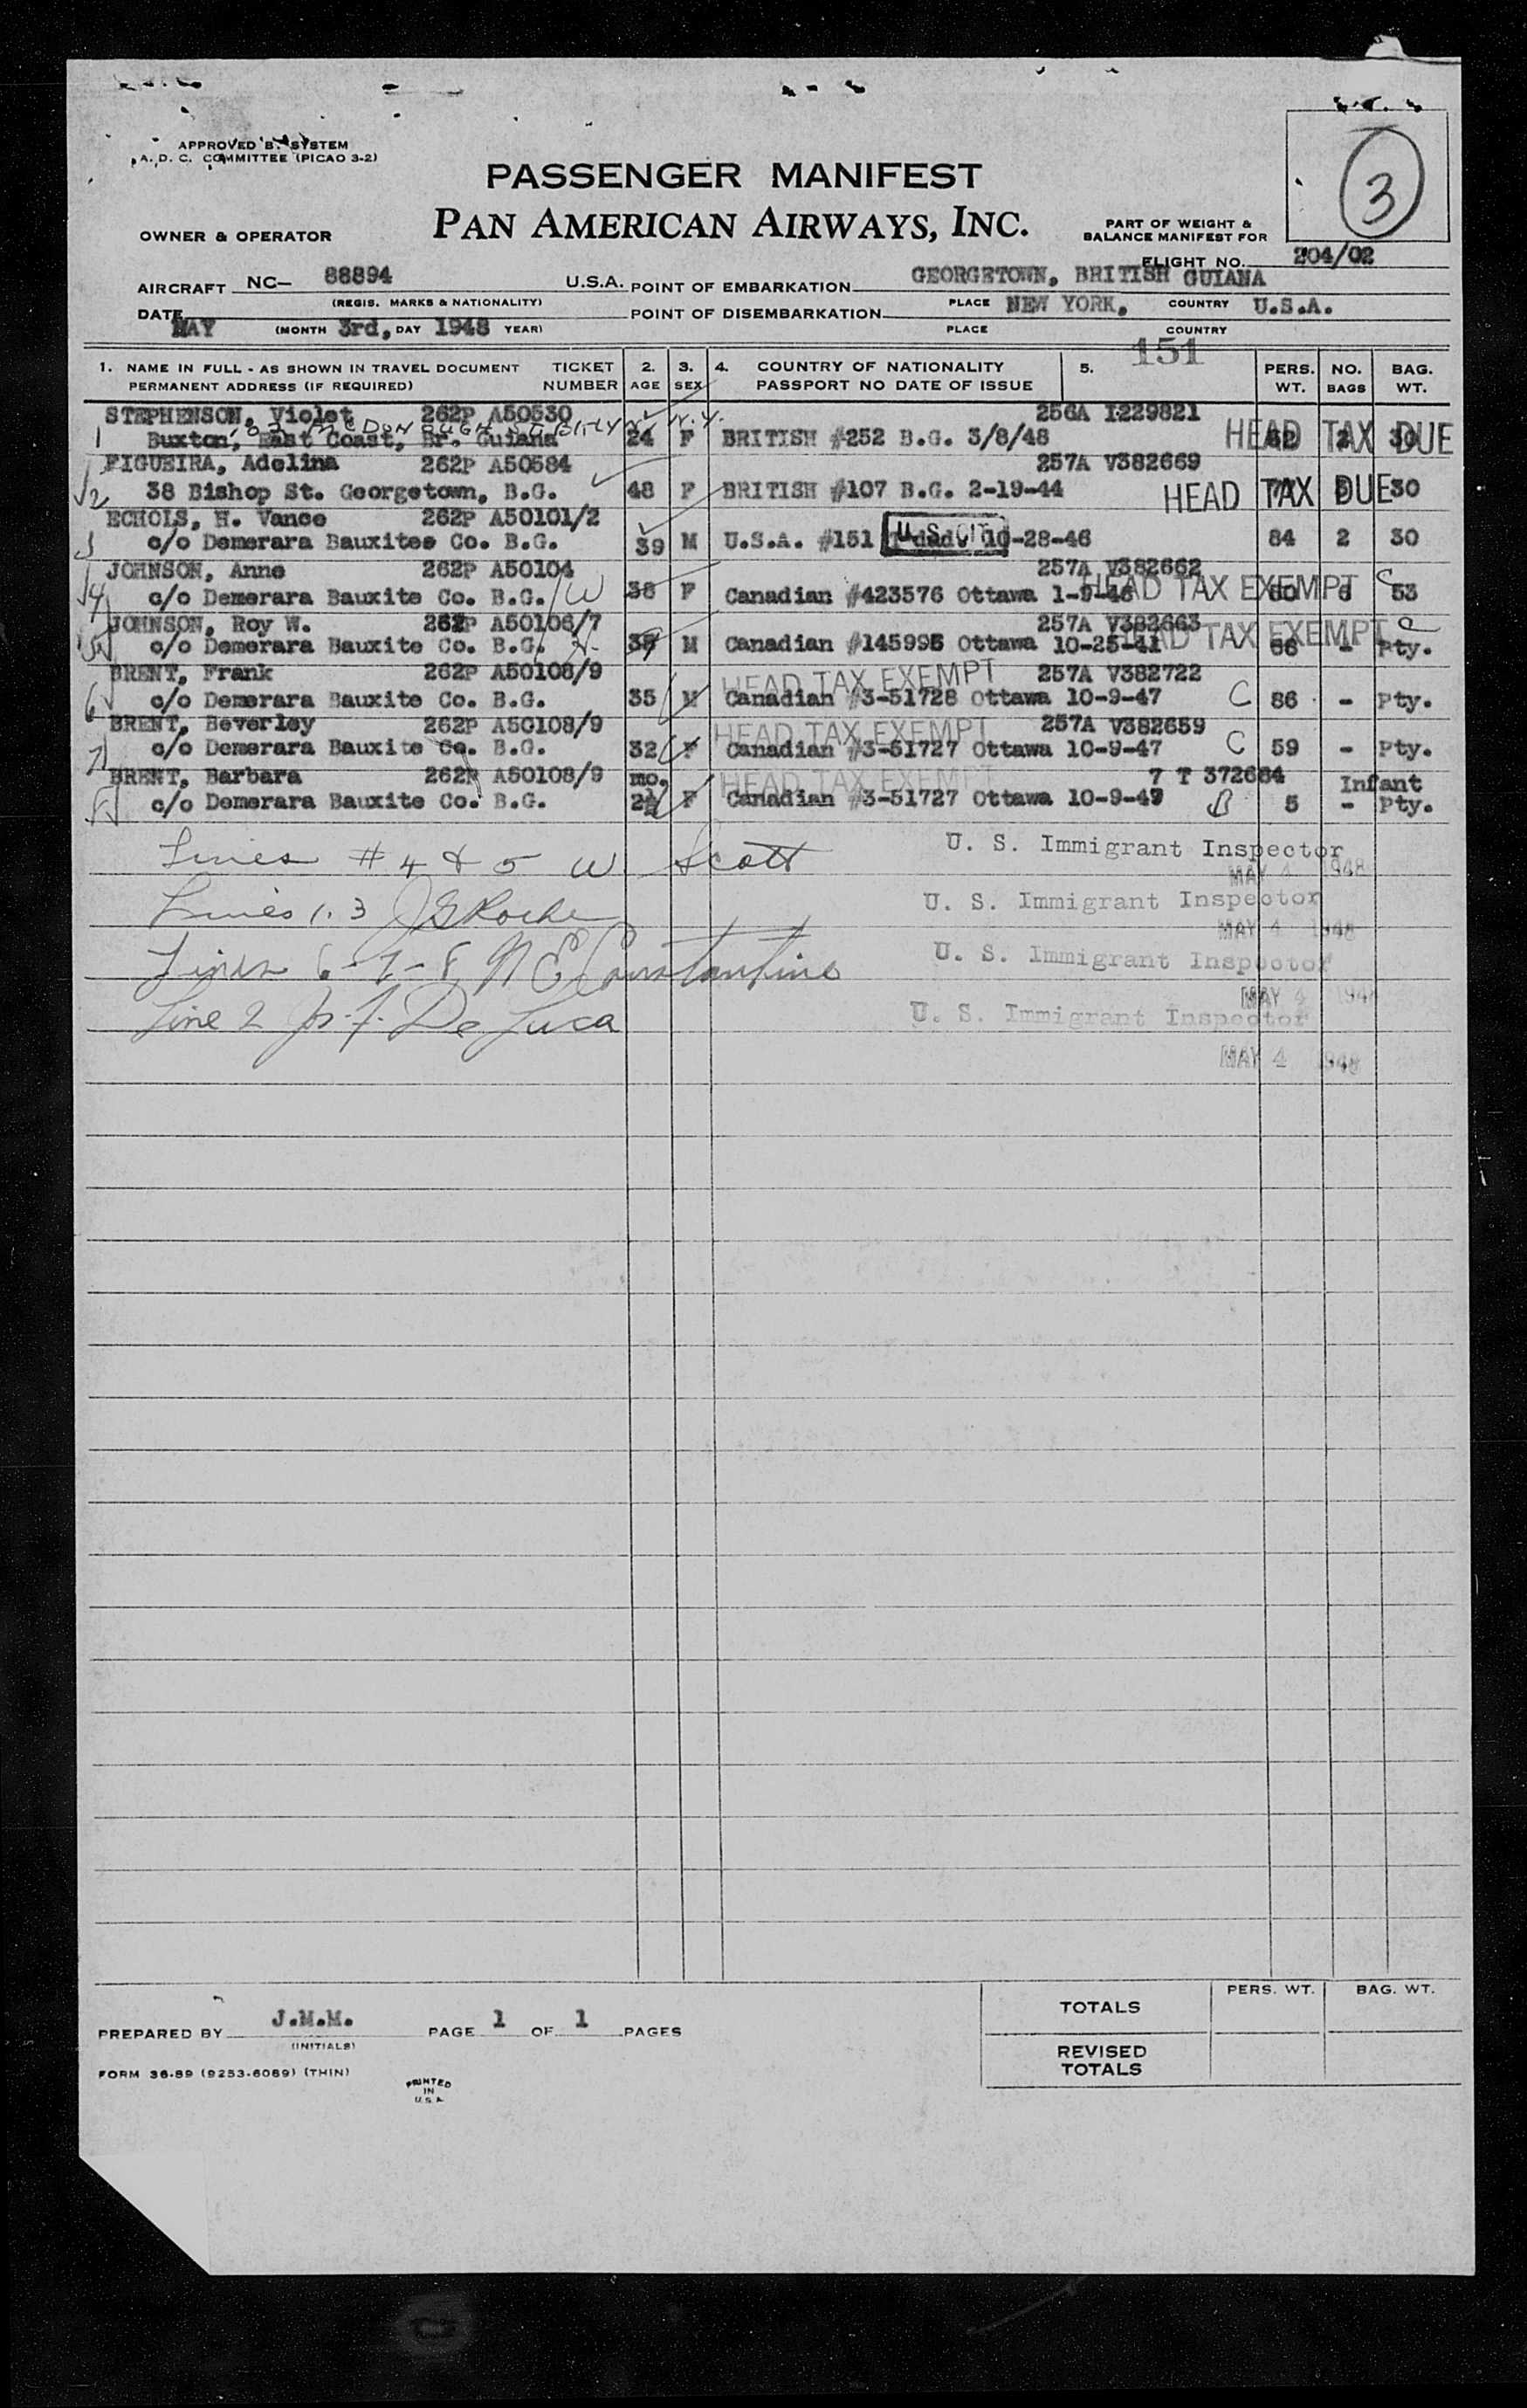 APPROVED B. SYSTEM
A. D. C. COMMITTEE (PICAO 3-2)
3
PASSENGER MANIFEST
PAN AMERICAN AIRWAYS, INC.
OWNER & OPERATOR
PART OF WEIGHT &
BALANCE MANIFEST FOR
FLIGHT NO. 204/02
AIRCRAFT NC- 88894 U.S.A. POINT OF EMBARKATION GEORGETOWN, BRITISH GUIANA
(REGIS. MARKS & NATIONALITY) PLACE COUNTRY
DATE MAY (MONTH 3rd, DAY 1948 YEAR) POINT OF DISEMBARKATION NEW YORK, U.S.A.
PLACE COUNTRY
151
1. NAME IN FULL - AS SHOWN IN TRAVEL DOCUMENT TICKET 2. 3. 4. COUNTRY OF NATIONALITY 5. PERS. NO. BAG.
PERMANENT ADDRESS (IF REQUIRED) NUMBER AGE SEX PASSPORT NO DATE OF ISSUE WT. BAGS WT.
STEPHENSON, Violet 262P A50530 256A I229821
MCDONOUGH ST. N.Y.
1 Buxton, East Coast, Br. Guiana 24 F BRITISH #252 B.G. 3/8/48 HEAD TAX DUE
FIGUEIRA, Adelina 262P A50584 257A V382669
2 38 Bishop St. Georgetown, B.G. 48 F BRITISH #107 B.G. 2-19-44 HEAD TAX DUE 30
ECHOLS, H. Vance 262P A50101/2
3 c/o Demerara Bauxites Co. B.G. 39 M U.S.A. #151 U.S. CIT 10-28-46 84 2 30
JOHNSON, Anne 262P A50104 257A V382662
4 c/o Demerara Bauxite Co. B.G. W 38 F Canadian #423576 Ottawa 1-9-46 HEAD TAX EXEMPT C 53
JOHNSON, Roy W. 262P A50106/7 257A V382663
5 c/o Demerara Bauxite Co. B.G. M Canadian #145995 Ottawa 10-25-41 HEAD TAX EXEMPT 66 - Pty.
BRENT, Frank 262P A50108/9 HEAD TAX EXEMPT 257A V382722
6 c/o Demerara Bauxite Co. B.G. 35 M Canadian #3-51728 Ottawa 10-9-47 C 86 - Pty.
BRENT, Beverley 262P A50108/9 HEAD TAX EXEMPT 257A V382659
7 c/o Demerara Bauxite Co. B.G. 32 F Canadian #3-51727 Ottawa 10-9-47 C 59 - Pty.
BRENT, Barbara 262P A50108/9 mo. HEAD TAX EXEMPT 7 T 372684 Infant
8 c/o Demerara Bauxite Co. B.G. 2½ F Canadian #3-51727 Ottawa 10-9-47 B 5 - Pty.
Lines #4 & 5 W Scott U. S. Immigrant Inspector
MAY 4 1948
Lines 1.3 J G Roche U. S. Immigrant Inspector
MAY 4 1948
Lines 6-7-8 N E Constantine U. S. Immigrant Inspector
MAY 4 1948
Line 2 Jos. F. De Luca U. S. Immigrant Inspector
MAY 4 1948
PREPARED BY J.M.M. PAGE 1 OF 1 PAGES
(INITIALS)
FORM 36-89 (9253-6089) (THIN)
PRINTED
IN
U.S.A.
PERS. WT. BAG. WT.
TOTALS
REVISED
TOTALS